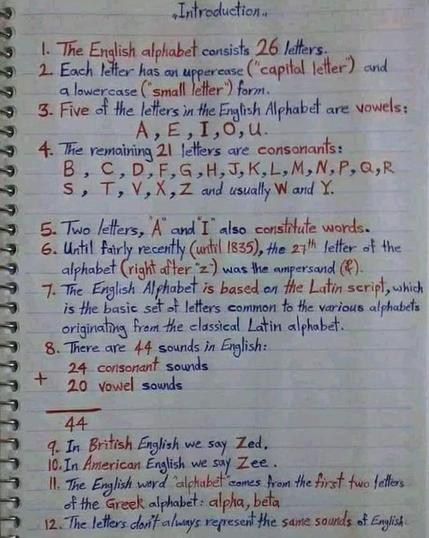 "Introduction"
1. The English alphabet consists 26 letters.
2. Each letter has an uppercase ("capital letter") and
a lowercase ("small letter") form.
3. Five of the letters in the English Alphabet are vowels:
A, E, I, O, U.
4. The remaining 21 letters are consonants:
B, C, D, F, G, H, J, K, L, M, N, P, Q, R
S, T, V, X, Z and usually W and Y.
5. Two letters, "A" and "I" also constitute words.
6. Until fairly recently (until 1835), the 27th letter of the
alphabet (right after "z") was the ampersand (&).
7. The English Alphabet is based on the Latin script, which
is the basic set of letters common to the various alphabets
originating from the classical Latin alphabet.
8. There are 44 sounds in English:
24 consonant sounds
+ 20 vowel sounds
44
9. In British English we say Zed.
10. In American English we say Zee.
11. The English word "alphabet" comes from the first two letters
of the Greek alphabet: alpha, beta
12. The letters don't always represent the same sounds of English.